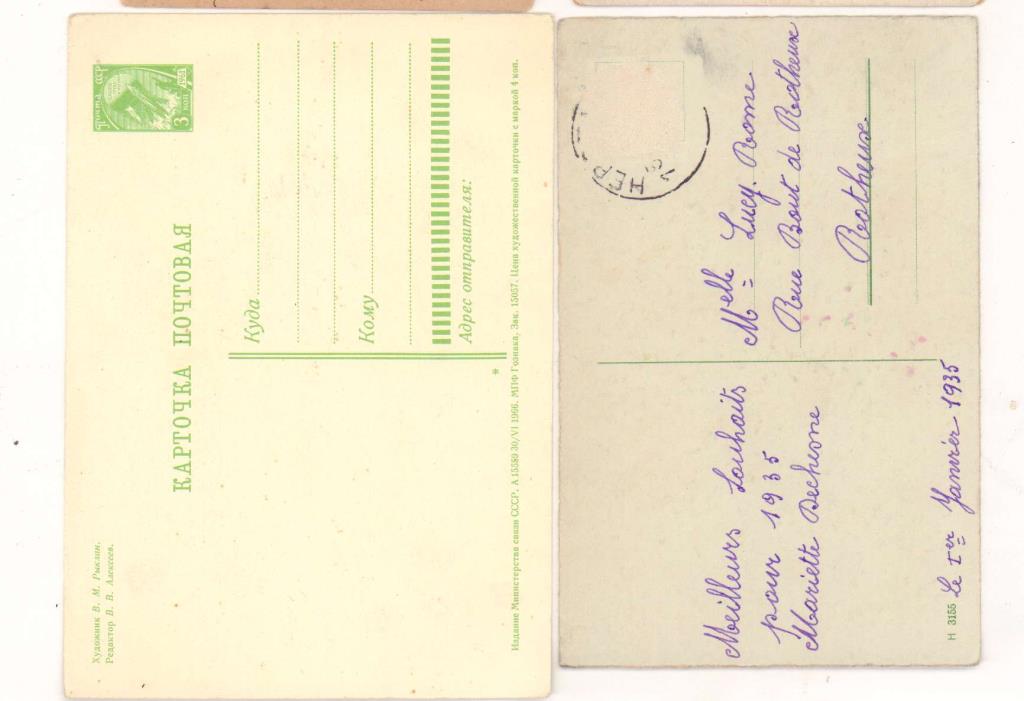 Художник В. М. Рыклин.
Редактор В. В. Алексеев.
КАРТОЧКА ПОЧТОВАЯ
Почта СССР
1961
3 коп
Куда
Кому
Адрес отправителя:
*
Издание Министерства связи СССР. А 15589 30/VI 1966. МПФ Гознака. Зак. 15057. Цена художественной карточки с маркой 4 коп.
Meilleurs Souhaits
pour 1935
Mariette Dechesne
Le 1er Janvier 1935
H 3155
Melle Lucy. Rome
Rue Bout de Rotheux
Rotheux.